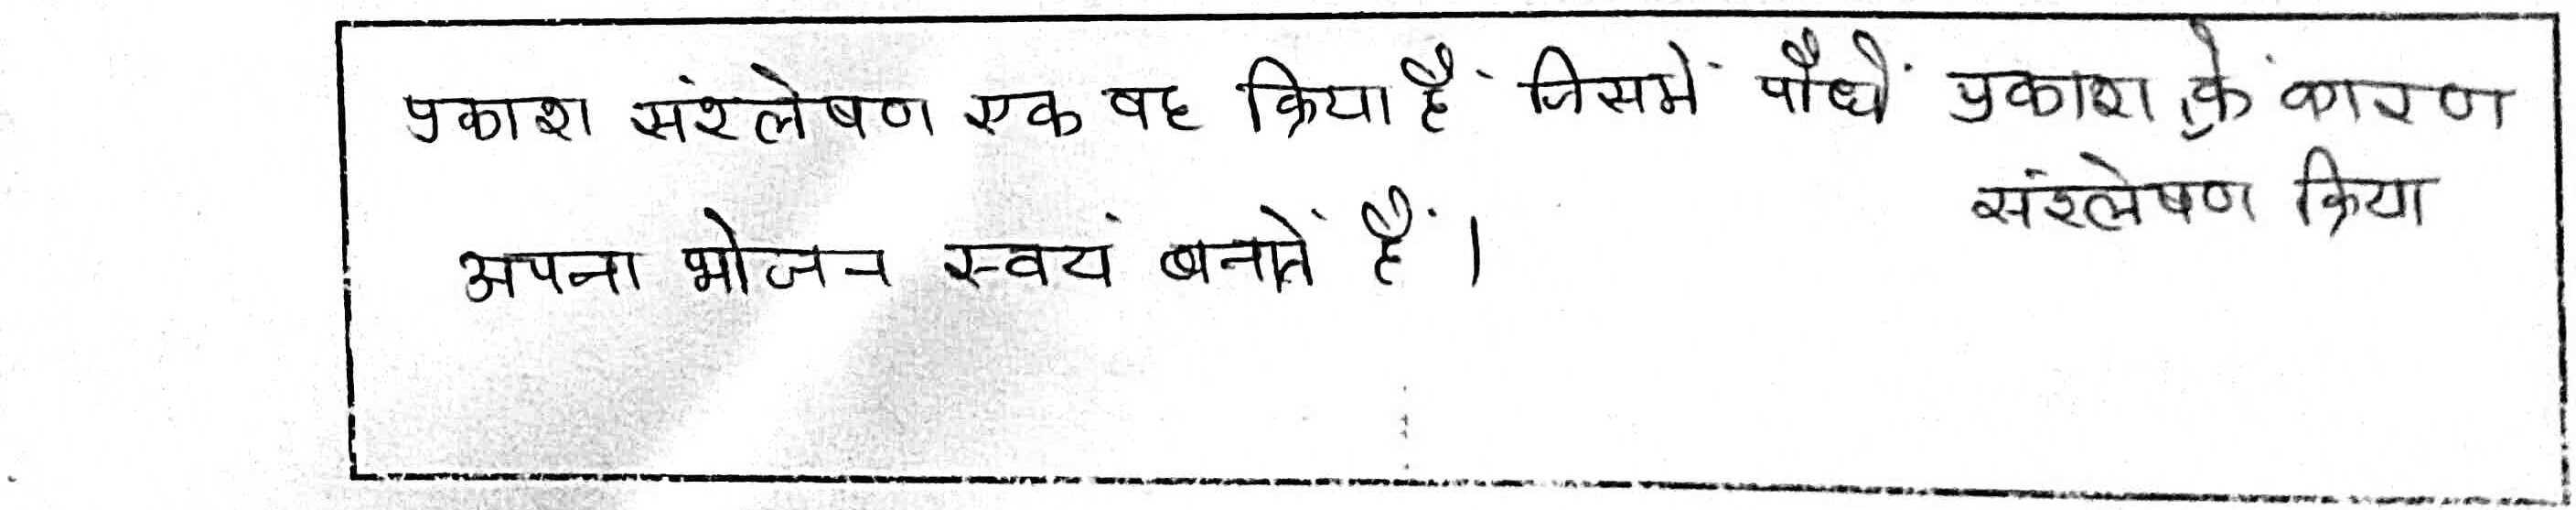 प्रकाश संश्लेषण एक वह क्रिया हैं जिसमें पौधें प्रकाश के कारण
संश्लेषण क्रिया
अपना भोजन स्वयं बनातें हैं ।